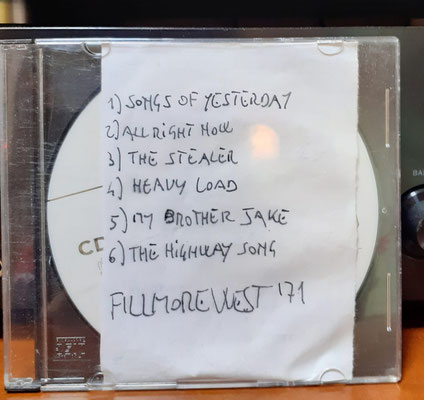 1) SONGS OF YESTERDAY
2) ALL RIGHT NOW
3) THE STEALER
4) HEAVY LOAD
5) MY BROTHER JAKE
6) THE HIGHWAY SONG
FILLMORE WEST '71
CD
BA